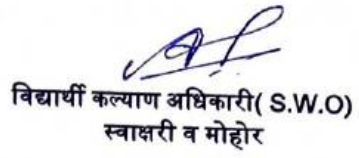 विद्यार्थी कल्याण अधिकारी( S.W.O)
स्वाक्षरी व मोहोर